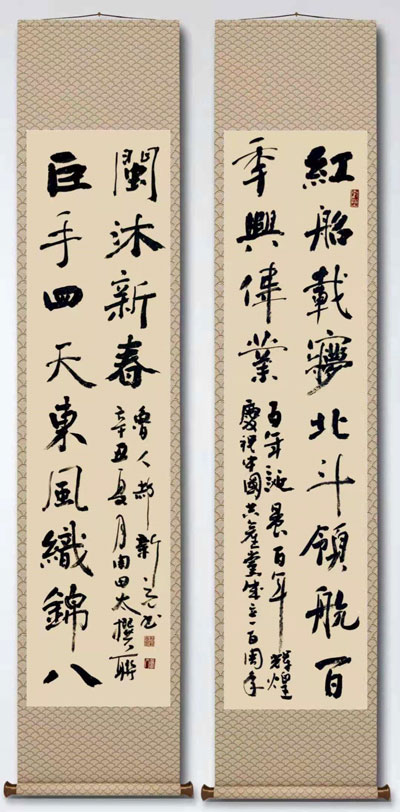 紅船載夢北斗領航百
年興偉業
百年誕晨百年輝煌
慶祝中國共產黨成立一百周年
巨手回天東風織錦八
閩沐新春
辛丑夏月南田太撰聯
魯人郝新書